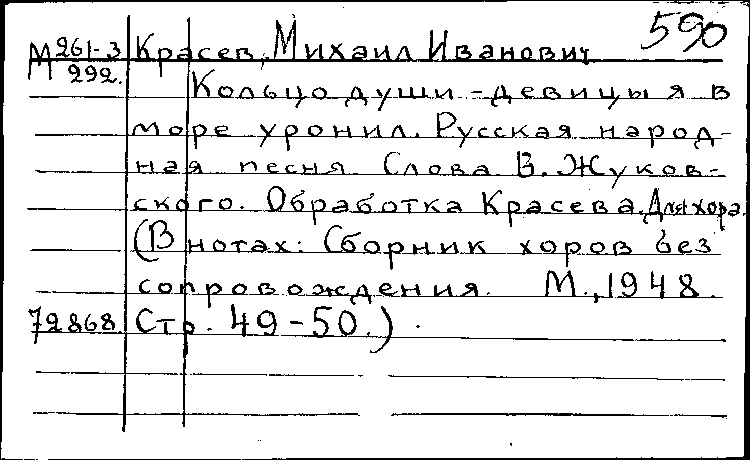 590
М 261-3 Красев, Михаил Иванович
292.
Кольцо души-девицы я в
море уронил. Русская народ-
ная песня. Слова В. Жуков-
ского. Обработка Красева. Для хора.
(В нотах: Сборник хоров без
сопровождения. М., 1948.
72868. Стр. 49-50.).